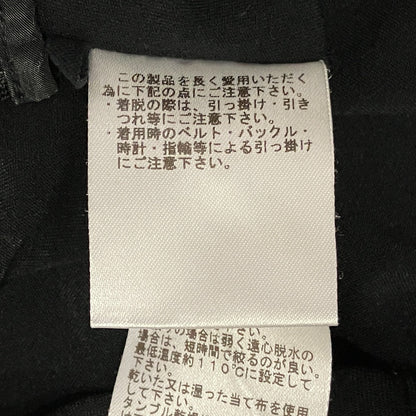 この製品を長く愛用いただく
為に下記の点にご注意下さい。
・着脱の際は、引っ掛け・引き
つれ等にご注意下さい。
・着用時のベルト・バックル・
時計・指輪等による引っ掛け
にご注意下さい。
場合は弱く遠心脱水の
場合は、短時間で絞るのが良い。
最低温度約110℃に設定して
下さい。
乾いた又は湿った当て布を使用
して下さい。
タンブル乾